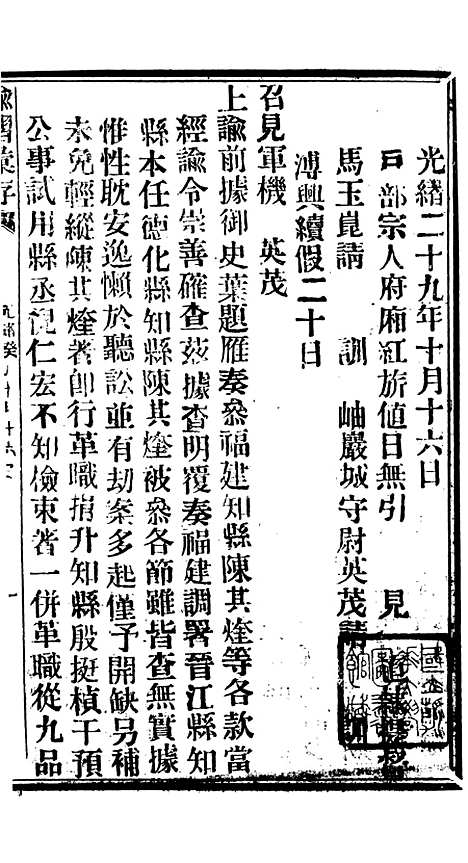 光緒二十九年十月十六日
戸部宗人府廂紅旂值日無引　見
馬玉崑請　訓　岫巖城守尉英茂請
溥興續假二十日
召見軍機　英茂
上諭前據御史葉題雁奏叅福建知縣陳其煃等各款當
經諭令崇善確查茲據查明覆奏福建調署晉江縣知
縣本任德化縣知縣陳其煃被叅各節雖皆查無實據
惟性耽安逸懶於聽訟並有劫案多起僅予開缺另補
未免輕縱陳其煃著卽行革職捐升知縣殷挺楨干預
公事試用縣丞倪仁宏不知檢束著一併革職從九品
諭摺彙存